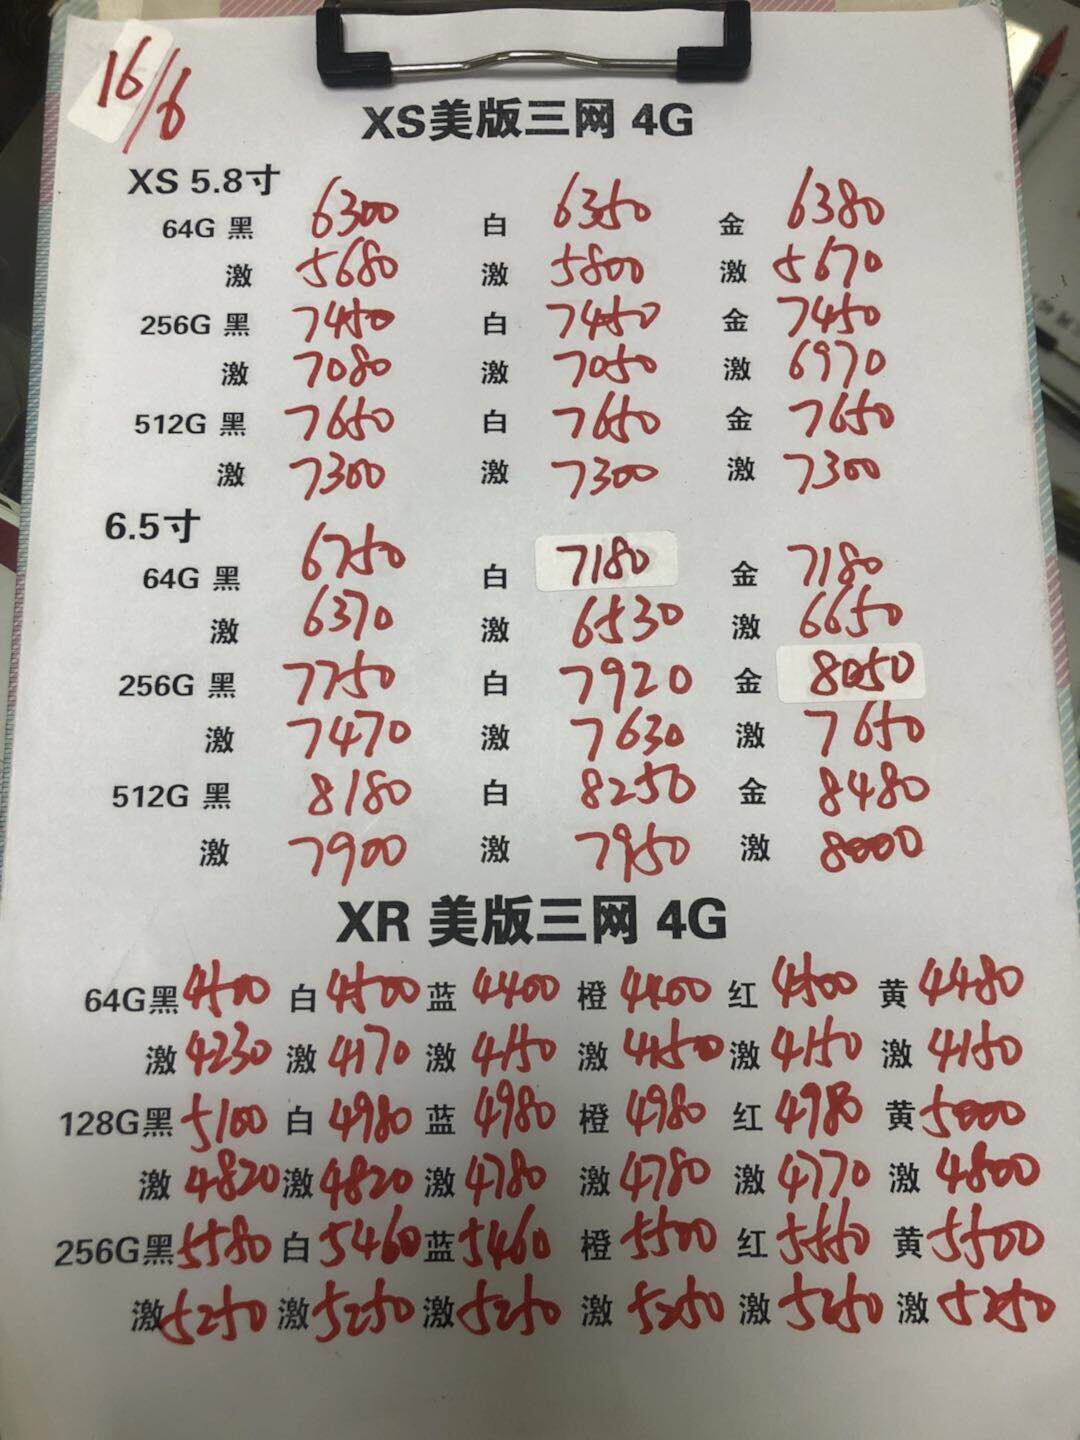 16/6
XS美版三网 4G
XS 5.8寸
64G 黑 6300 白 6350 金 6380
激 5680 激 5800 激 5670
256G 黑 7450 白 7450 金 7450
激 7080 激 7050 激 6970
512G 黑 7650 白 7650 金 7650
激 7300 激 7300 激 7300
6.5寸
64G 黑 6750 白 7180 金 7180
激 6370 激 6530 激 6650
256G 黑 7750 白 7920 金 8050
激 7470 激 7630 激 7650
512G 黑 8180 白 8250 金 8480
激 7900 激 7950 激 8000
XR 美版三网 4G
64G黑 4500 白 4500 蓝 4400 橙 4400 红 4500 黄 4480
激 4230 激 4170 激 4150 激 4150 激 4150 激 4150
128G黑 5100 白 4980 蓝 4980 橙 4980 红 4980 黄 5000
激 4820 激 4820 激 4780 激 4780 激 4770 激 4800
256G黑 5580 白 5460 蓝 5460 橙 5500 红 5550 黄 5500
激 5250 激 5250 激 5250 激 5250 激 5250 激 5250